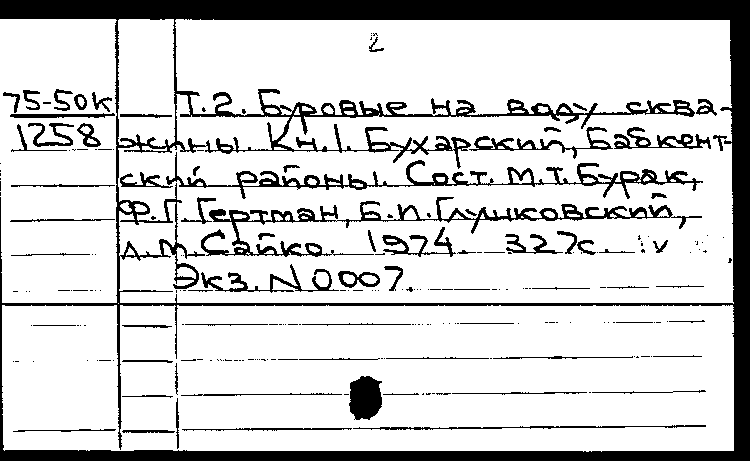 2
75-50к Т.2. Буровые на воду сква-
1258 жины. Кн.1. Бухарский, Бабкент-
ский районы. Сост. М.Т. Бурак,
Ф.Г. Гертман, Б.П. Глушковский,
Л.М. Сайко. 1974. 327с.
Экз. N0007.